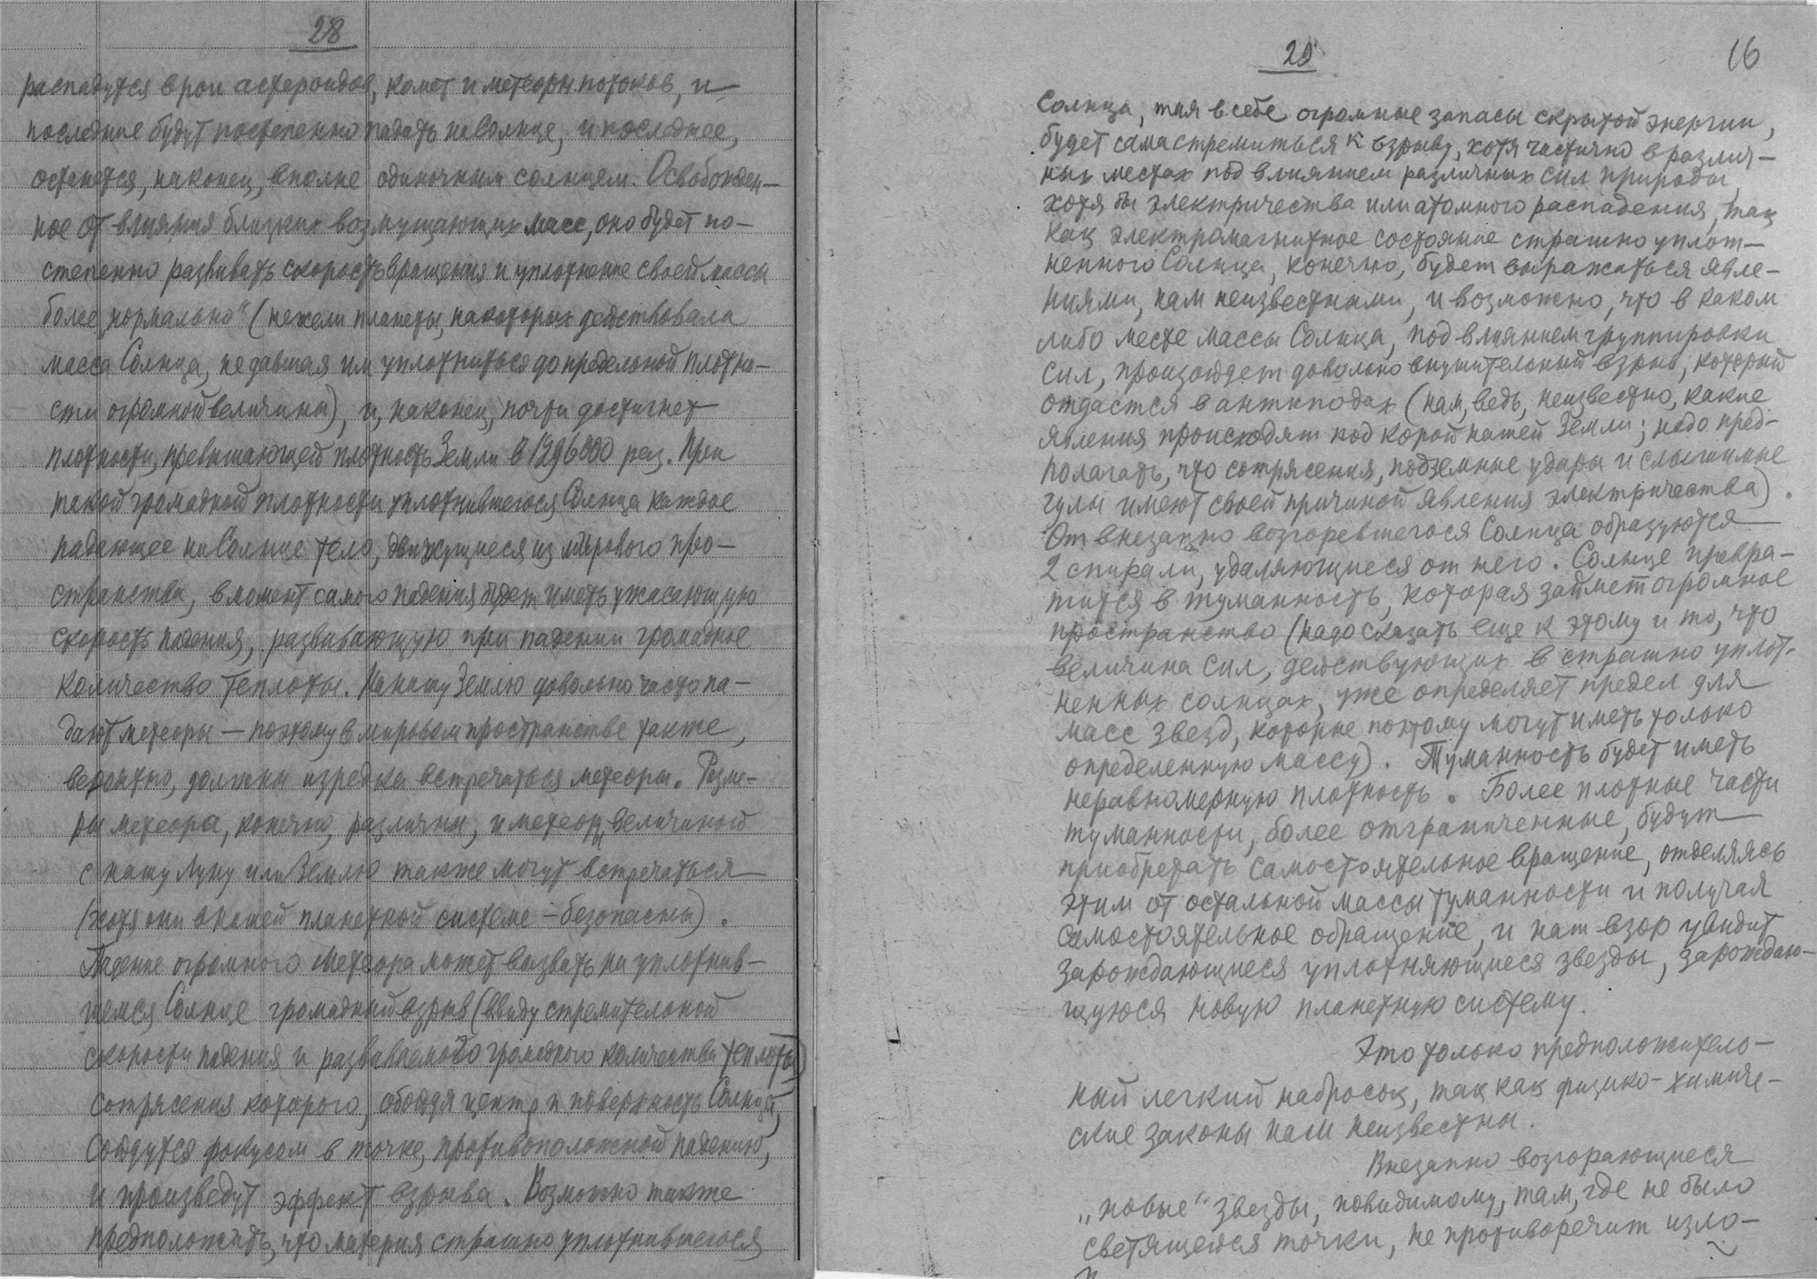 28
распадутся в рои астероидов, комет и метеорн. потоков, и
последние будут постепенно падать на Солнце, и последнее,
останется, наконец, вполне одиночным солнцем. Освобожден-
ное от влияния близких возмущающих масс, оно будет по-
степенно развивать скорость вращения и уплотнение своей массы
более „нормально“ (нежели планеты, на которых действовала
масса Солнца, не давшая им уплотниться до предельной плотно-
сти огромной величины), и, наконец, почти достигнет
плотности, превышающей плотность Земли в 1296000 раз. При
такой громадной плотности уплотнившегося Солнца каждое
падающее на Солнце тело, движущиеся из мирового про-
странства, в момент самого падения будет иметь ужасающую
скорость падения, развивающую при падении громадное
количество теплоты. На нашу Землю довольно часто па-
дают метеоры — поэтому в мировом пространстве также,
вероятно, должны изредка встречаться метеоры. Разме-
ры метеора, конечно, различны, и метеоры, величиной
с нашу Луну или Землю также могут встречаться
(хотя они в нашей планетной системе – безопасны).
Падение огромного метеора может вызвать на уплотнив-
шемся Солнце громадный взрыв (ввиду стремительной
скорости падения и развиваемого громадного количества теплоты)
сотрясения которого, обойдя центр и поверхность Солнца,
сойдутся фокусом в точке, противоположной падению,
и произведут эффект взрыва. Возможно также
предположить, что материя страшно уплотнившегося
29
16
Солнца, тая в себе огромные запасы скрытой энергии,
будет сама стремиться к взрыву, хотя частично в различ-
ных местах под влиянием различных сил природы,
хотя бы электричества или атомного распадения, так
как электромагнитное состояние страшно уплот-
ненного Солнца, конечно, будет выражаться явле-
ниями, нам неизвестными, и возможно, что в каком
либо месте массы Солнца, под влиянием группировки
сил, произойдет довольно внушительный взрыв, который
отдастся в антиподах (нам, ведь, неизвестно, какие
явления происходят под корой нашей Земли; надо пред-
полагать, что сотрясения, подземные удары и слышимые
гулы имеют своей причиной явления электричества).
От внезапно возгоревшегося Солнца образуются
2 спирали, удаляющиеся от него. Солнце превра-
тится в туманность, которая займет огромное
пространство (надо сказать еще к этому и то, что
величина сил, действующих в страшно уплот-
ненных солнцах, уже определяет предел для
масс звезд, которые поэтому могут иметь только
определенную массу). Туманность будет иметь
неравномерную плотность. Более плотные части
туманности, более отграниченные, будут
приобретать самостоятельное вращение, отделяясь
этим от остальной массы туманности и получая
самостоятельное обращение, и наш взор увидит
зарождающиеся уплотняющиеся звезды, зарождаю-
щуюся новую планетную систему.
Это только предположитель-
ный легкий набросок, так как физико-химиче-
ские законы нам неизвестны.
Внезапно возгорающиеся
„новые“ звезды, повидимому, там, где не было
светящейся точки, не противоречит изло-